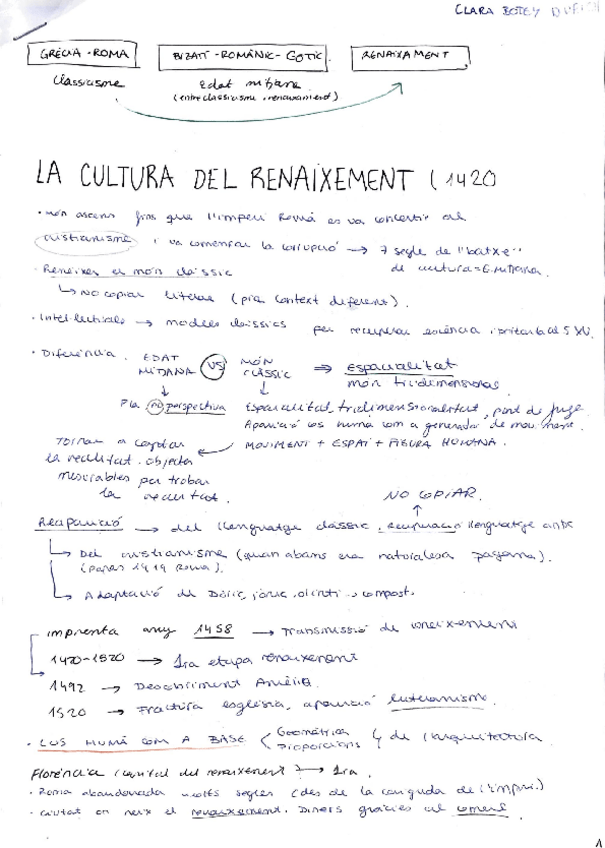 CLARA BOTEY
GRÈCIA - ROMA
BIZATÍ - ROMÀNIC - GOTIC
RENAIXAMENT
Classicisme
Edat mitjana
(entre classicisme i renaixament)
LA CULTURA DEL RENAIXEMENT (1420
• món ascens fins que l'imperi Romà es va convertir al
cristianisme i va comenrar la corrupció → 7 segle de "batxe"
de cultura = E. mitjana.
• Renéixer el món clàssic
↳ NO copiar literal (pla context diferent).
• Intel·lectuals → models clàssics per recuperar essència i britat al S XV.
• Diferència. EDAT MITJANA VS MÓN CLÀSSIC ⇒ espacialitat
món tridimensional
Pla no perspectiva
Espacialitat, tridimensionalitat, punt de fuga.
Aparició cos humà com a generador de
MOVIMENT + ESPAI + FIGURA HUMANA.
Tornar a captar
la realitat. objectes
mesurables per trobar
la realitat.
NO COPIAR.
Reaparició → del llenguatge clàssic, recuperació llenguatge antic
↳ Del cristianisme (quan abans era naturalesa pagana).
(papes 1419 Roma).
↳ Adaptació de Dòric, jònic, i compost.
imprenta any 1458 → Transmissió de coneixement
1420-1520 → 1ra etapa renaixement
1492 → Descobriment Amèrica.
1520 → Fractura església, aparició luteranisme.
• COS HUMÀ COM A BASE < Geomètrica Proporcions de l'arquitectura
Florència (capital del renaixement) → 1ra.
• Roma abandonada molts segles (des de la caiguda de l'imperi.)
• ciutat on neix el renaixement. Diners gràcies al comerç
1